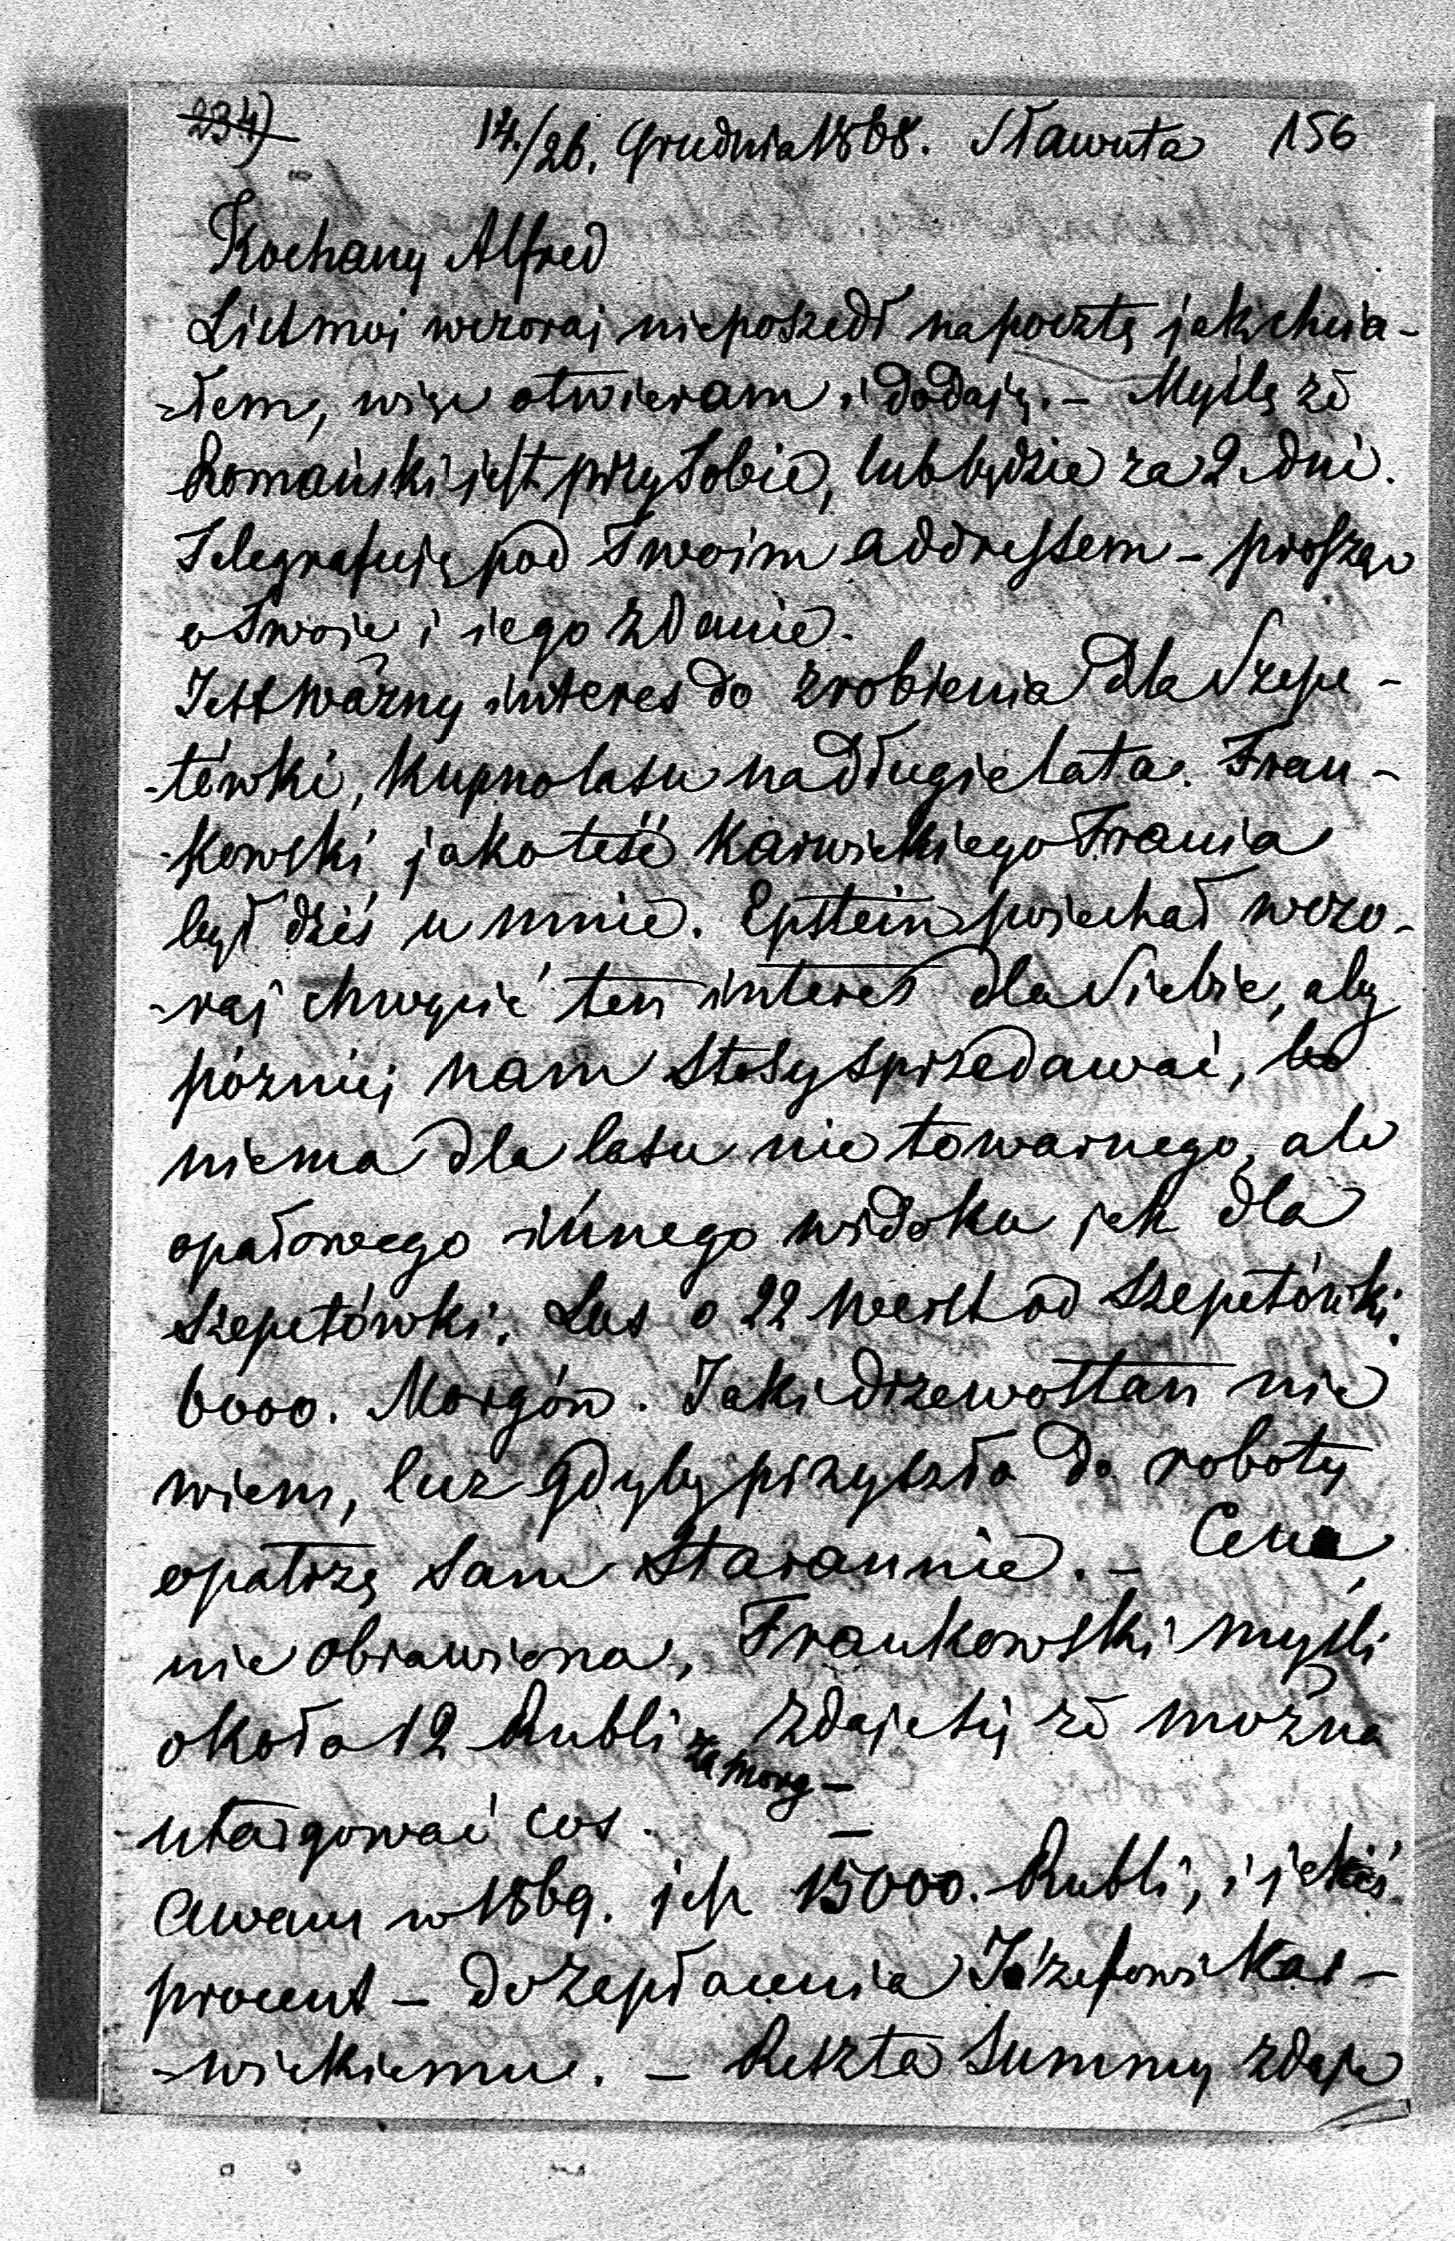 234) 14./26. Grudnia 1868. Sławuta 156
Kochany Alfred
List moj wczoraj nieposzedł na pocztę jak chcia-
-łem, więc otwieram i dodaję. - Myślę że
Romański jest przy Tobie, lub będzie za 2 dni.
Telegrafuję pod Twoim addressem - prosząc
o Twoie i iego zdanie.
Jest ważny interes do zrobienia dla Szepe-
-tówki, kupno lasu na długie lata. Fran-
-kowski jako teść Karwickiego Frania
był dziś u mnie. Epstein pojechał wczo-
-raj chwycić ten interes dla Siebie, aby
pózniej nam Stosy sprzedawać, bo
niema dla lasu nie towarnego, ale
opałowego innego widoku jak dla
Szepetówki. Las o 22 Werst od Szepetówki.
6000. Morgów. Jaki drzewostan nie
wiem, lecz gdyby przyszło do roboty
opatrzę sam Starannie. - Cena
nie obiawiona, Frankowski myśli
około 12 Rubli za morg - zdaje się że można
utargować cos. -
a w 1869. jest 15000. Rubli, i jakiś
procent - do zapłacenia Józefowi Kar-
-wickiemu. - Reszta Summy zdaje